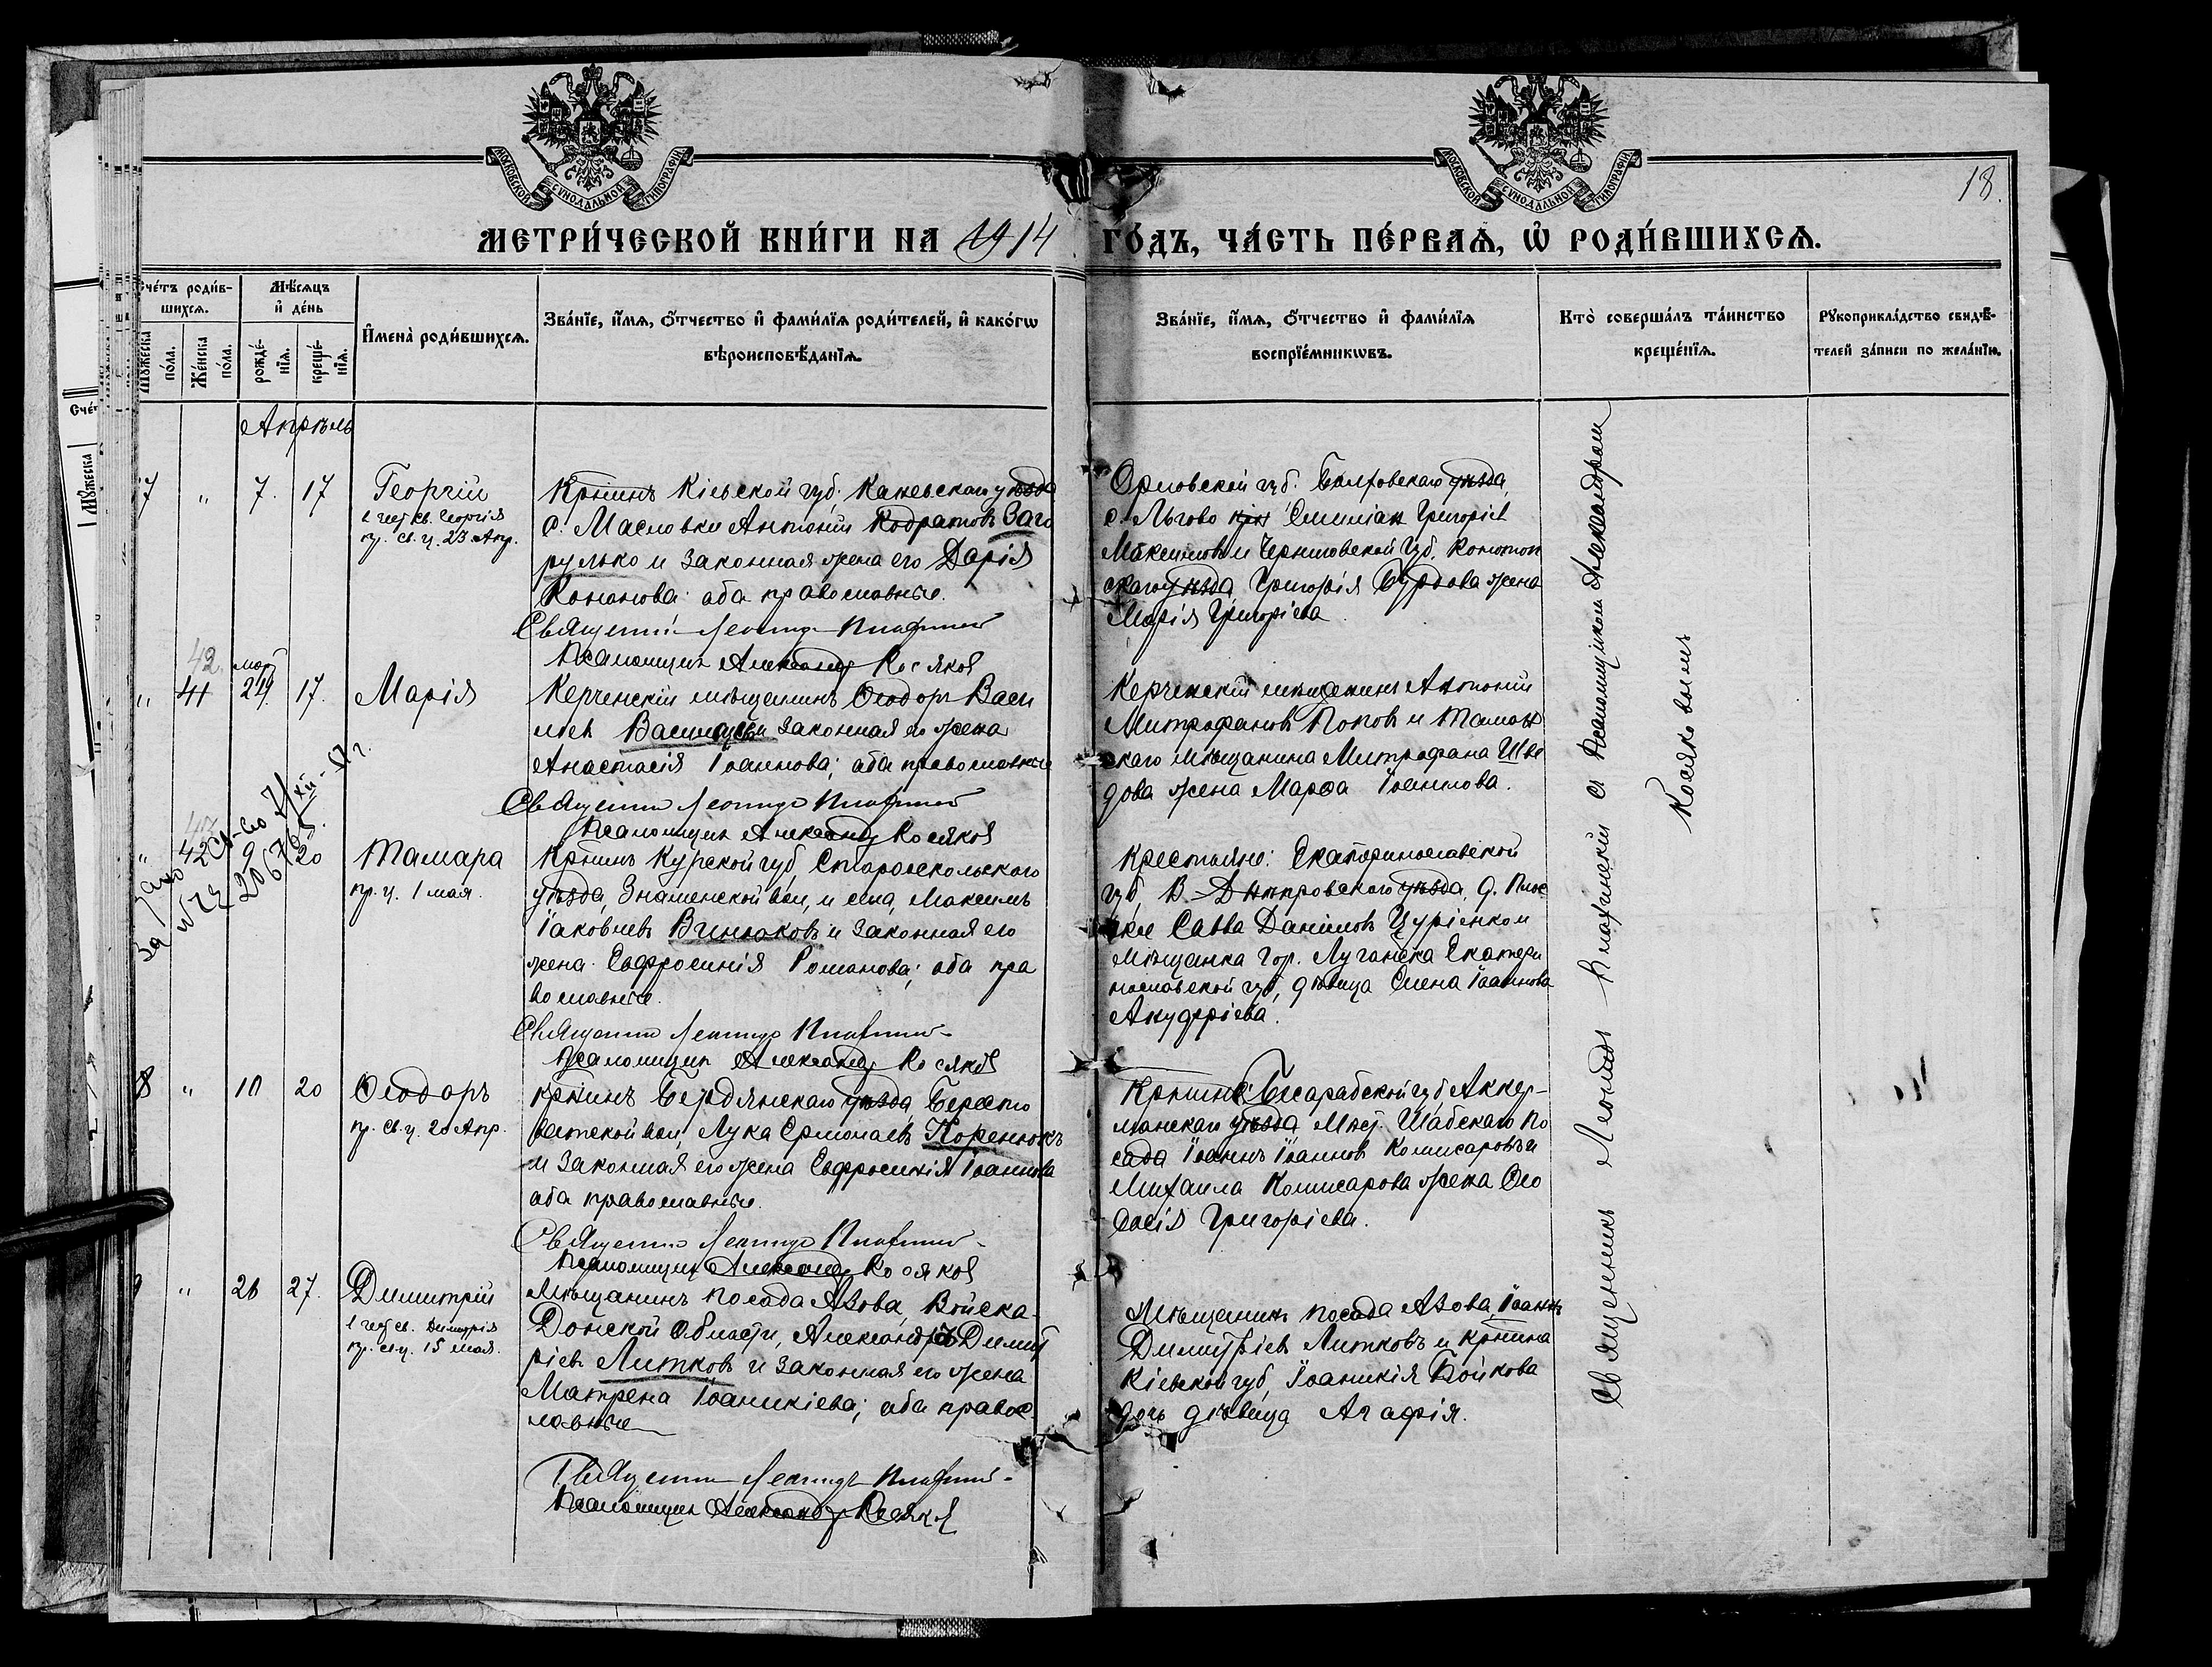 МОСКОВСКОЙ СѴНОДАЛЬНОЙ ТИПОГРАФІИ
МОСКОВСКОЙ СѴНОДАЛЬНОЙ ТИПОГРАФІИ
18.
МЕТРИ́ЧЕСКОЙ КНИ́ГИ НА 1914 ГО́ДЪ, ЧА́СТЬ ПЕ́РВАѦ, Ѡ҆ РОДИ́ВШИХСѦ.
Сче́тъ роди́в-
шихсѧ.
Мѣ́сѧцъ
и҆ де́нь
Мꙋ́жеска
по́ла.
Же́нска
по́ла.
рожде́-
нїѧ.
креще́-
нїѧ.
И҆мена̀ роди́вшихсѧ.
Зва́нїе, и҆́мѧ, ѻ҆́тчество и҆ фами́лїѧ роди́телей, и҆ како́гѡ
вѣроисповѣ́данїѧ.
Зва́нїе, и҆́мѧ, ѻ҆́тчество и҆ фами́лїѧ
воспрїе́мникѡвъ.
Кто̀ соверша́лъ та́инство
креще́нїѧ.
Рꙋкоприкла́дство свидѣ́-
телей за́писи по жела́нїю.
Апрѣль
7 " 7. 17 Георгій
в чест св. Георгія
пр. св. ц. 23 Апр.
Крнинъ Кіевской губ. Каневскаго уѣзда
с. Масловки Антоній Кодратовъ Заго
рулько и законная жена его Дарія
Кононова: оба православные.
Священникъ Леонидъ
Псаломщикъ Александръ Косяковъ
Орловской губ. Болховскаго уѣзда,
с. Льгово крн Емиліан Григоріев
Максимовъ и Черниговской Губ. Конотоп
скаго уѣзда Григорія Бурдова жена
Марія Григоріева
42
" 41 март 24 17. Марія
Керченскій мѣщанинъ Ѳеодоръ Васи
льев Васильевъ и законная его жена
Анастасія Іоаннова; оба православные
Священникъ Леонидъ
Псаломщикъ Александръ Косяковъ
Керченскій мѣщанинъ Антоній
Митрофановъ Поповъ и Таман
скаго мѣщанина Митрофана Шве
дова жена Марѳа Іоаннова.
" 42 9 20 Тамара
пр. ц. 1 мая.
Крнинъ Курской губ, Старооскольскаго
уѣзда, Знаменской вол, и села, Максимъ
Іаковлевъ Винюковъ и законная его
жена Евфросинія Романова; оба пра
вославные.
Священникъ Леонидъ
Псаломщикъ Александръ Косяковъ
Крестьяне: Екатеринославской
губ, В.-Днѣпровскаго уѣзда,
Савва Даніиловъ Цуріенко и
мѣщанка гор. Луганска Екатери
нославской губ, дѣвица Елена Іоаннова
8 " 10 20 Ѳеодоръ
пр. св. ц. 20 Апр.
Крнинъ Бердянскаго уѣзда Бересто
ватской вол, Лука Ермолаевъ Коренюкъ
и законная его жена Евфросинія Іоаннова
оба православные.
Священникъ Леонидъ
Псаломщикъ Александръ Косяковъ
Крнинъ Бесарабской губ Аккер-
манскаго уѣзда Шабскаго по
сада Іоаннъ Іоаннов Комисаровъ и
Михаила Комисарова жена Ѳео
досія Григоріева.
9 " 26 27. Димитрій
в чест св. Димитрія
пр. св. ц. 15 мая.
Мѣщанинъ посада Азова, Войска-
Донской Области, Александръ Димит
ріевъ Литковъ и законная его жена
Матрена Іоанникіева; оба правос
лавные
Священникъ Леонидъ
Псаломщикъ Александръ Косяковъ
Мѣщанинъ посада Азова Іоаннъ
Димитріев Литковъ и крнина
Кіевской губ, Іоаникія Бойкова
дочь дѣвица Агафія.
Священникъ Леонидъ Кнахнескій съ Псаломщикомъ Александромъ
Косяковымъ